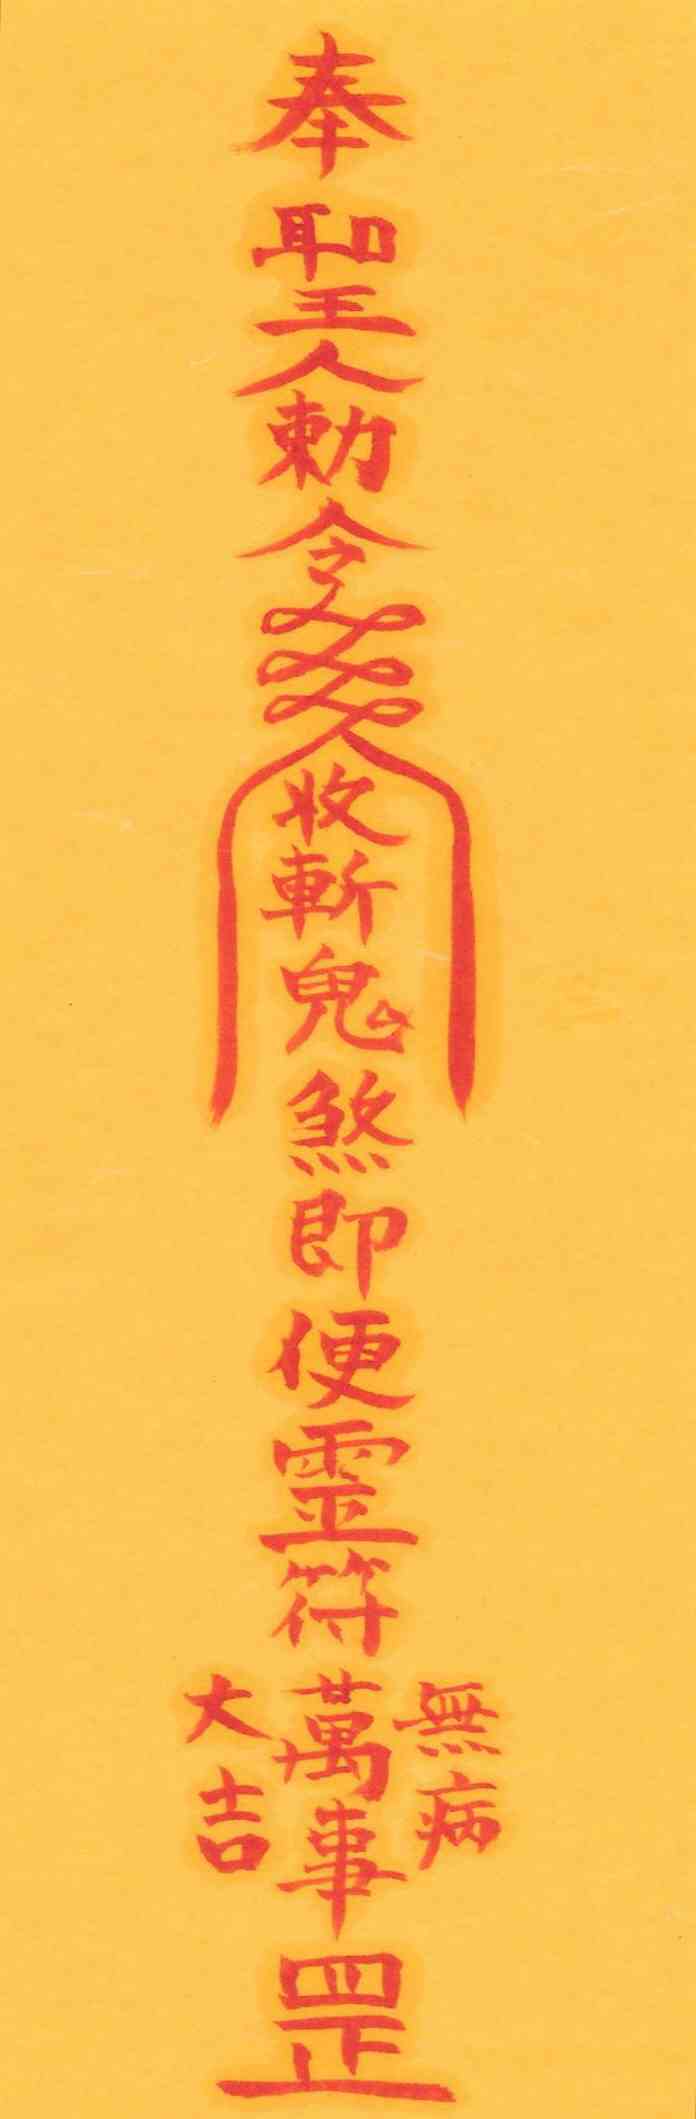 奉聖人勅令收斬鬼煞即便霊符
無病
萬事
大吉
罡